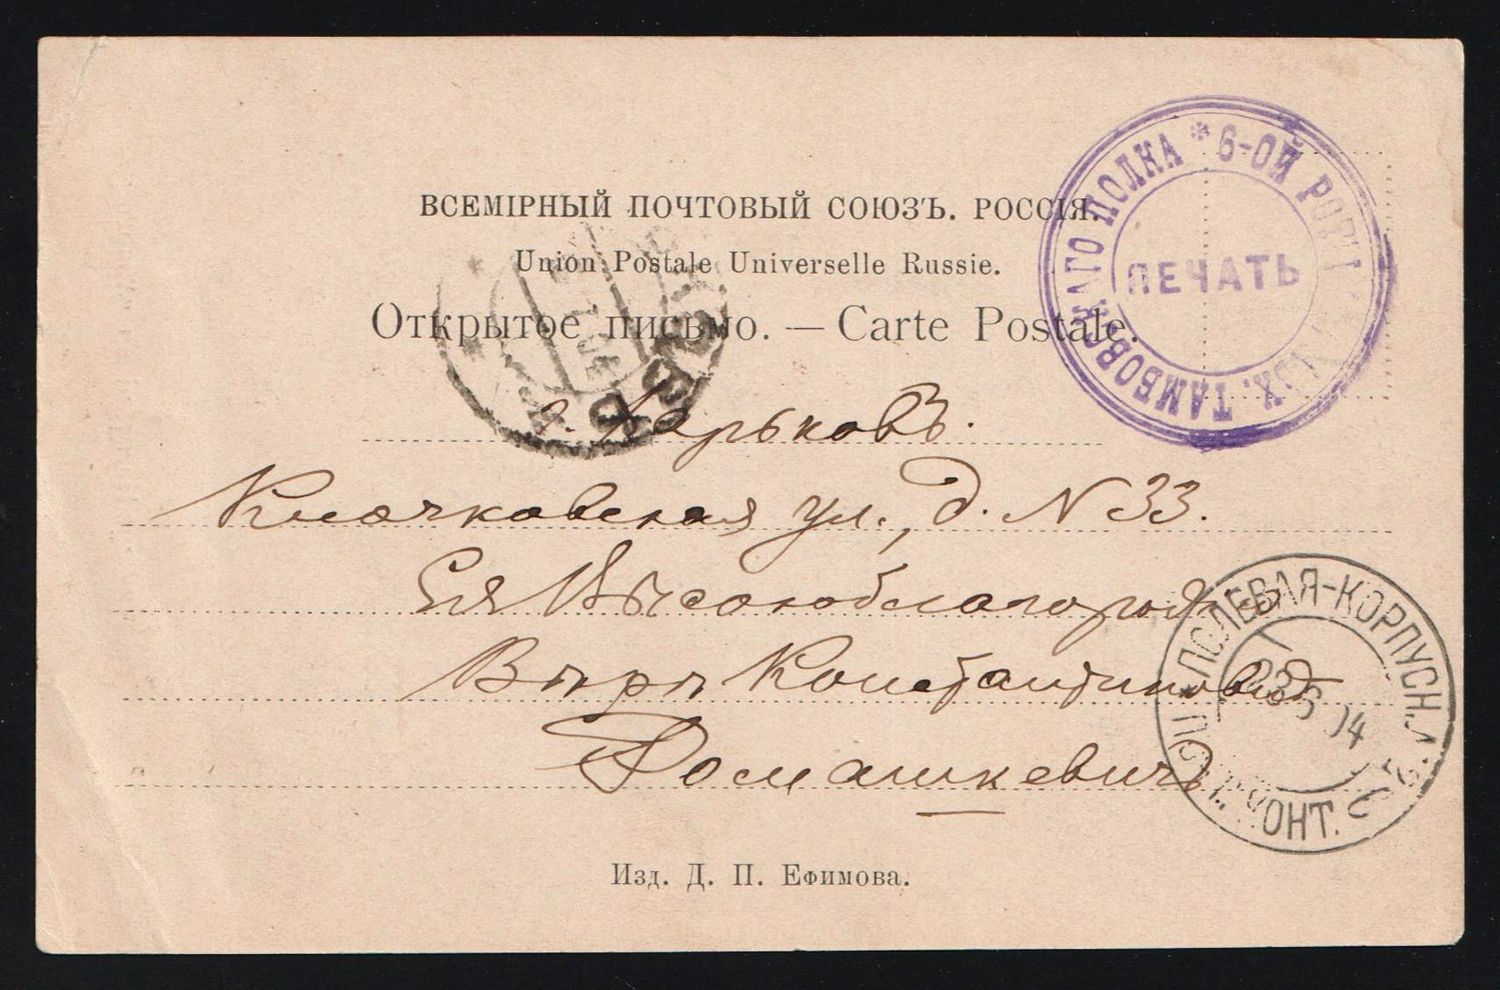 ВСЕМІРНЫЙ ПОЧТОВЫЙ СОЮЗЪ. РОССІЯ.
Union Postale Universelle Russie.
Открытое письмо. — Carte Postale.
* 6-ОЙ РОТЫ ПѢХ. ТАМБОВСКАГО ПОЛКА
ПЕЧАТЬ
г. Харьковъ.
Клочковская ул., д. N 33.
Ея Высокоблагородію
Вѣрѣ Константиновнѣ
Ромашкевичъ
ПОЛЕВАЯ-КОРПУСН.
КОНТ.
6 04
Изд. Д. П. Ефимова.